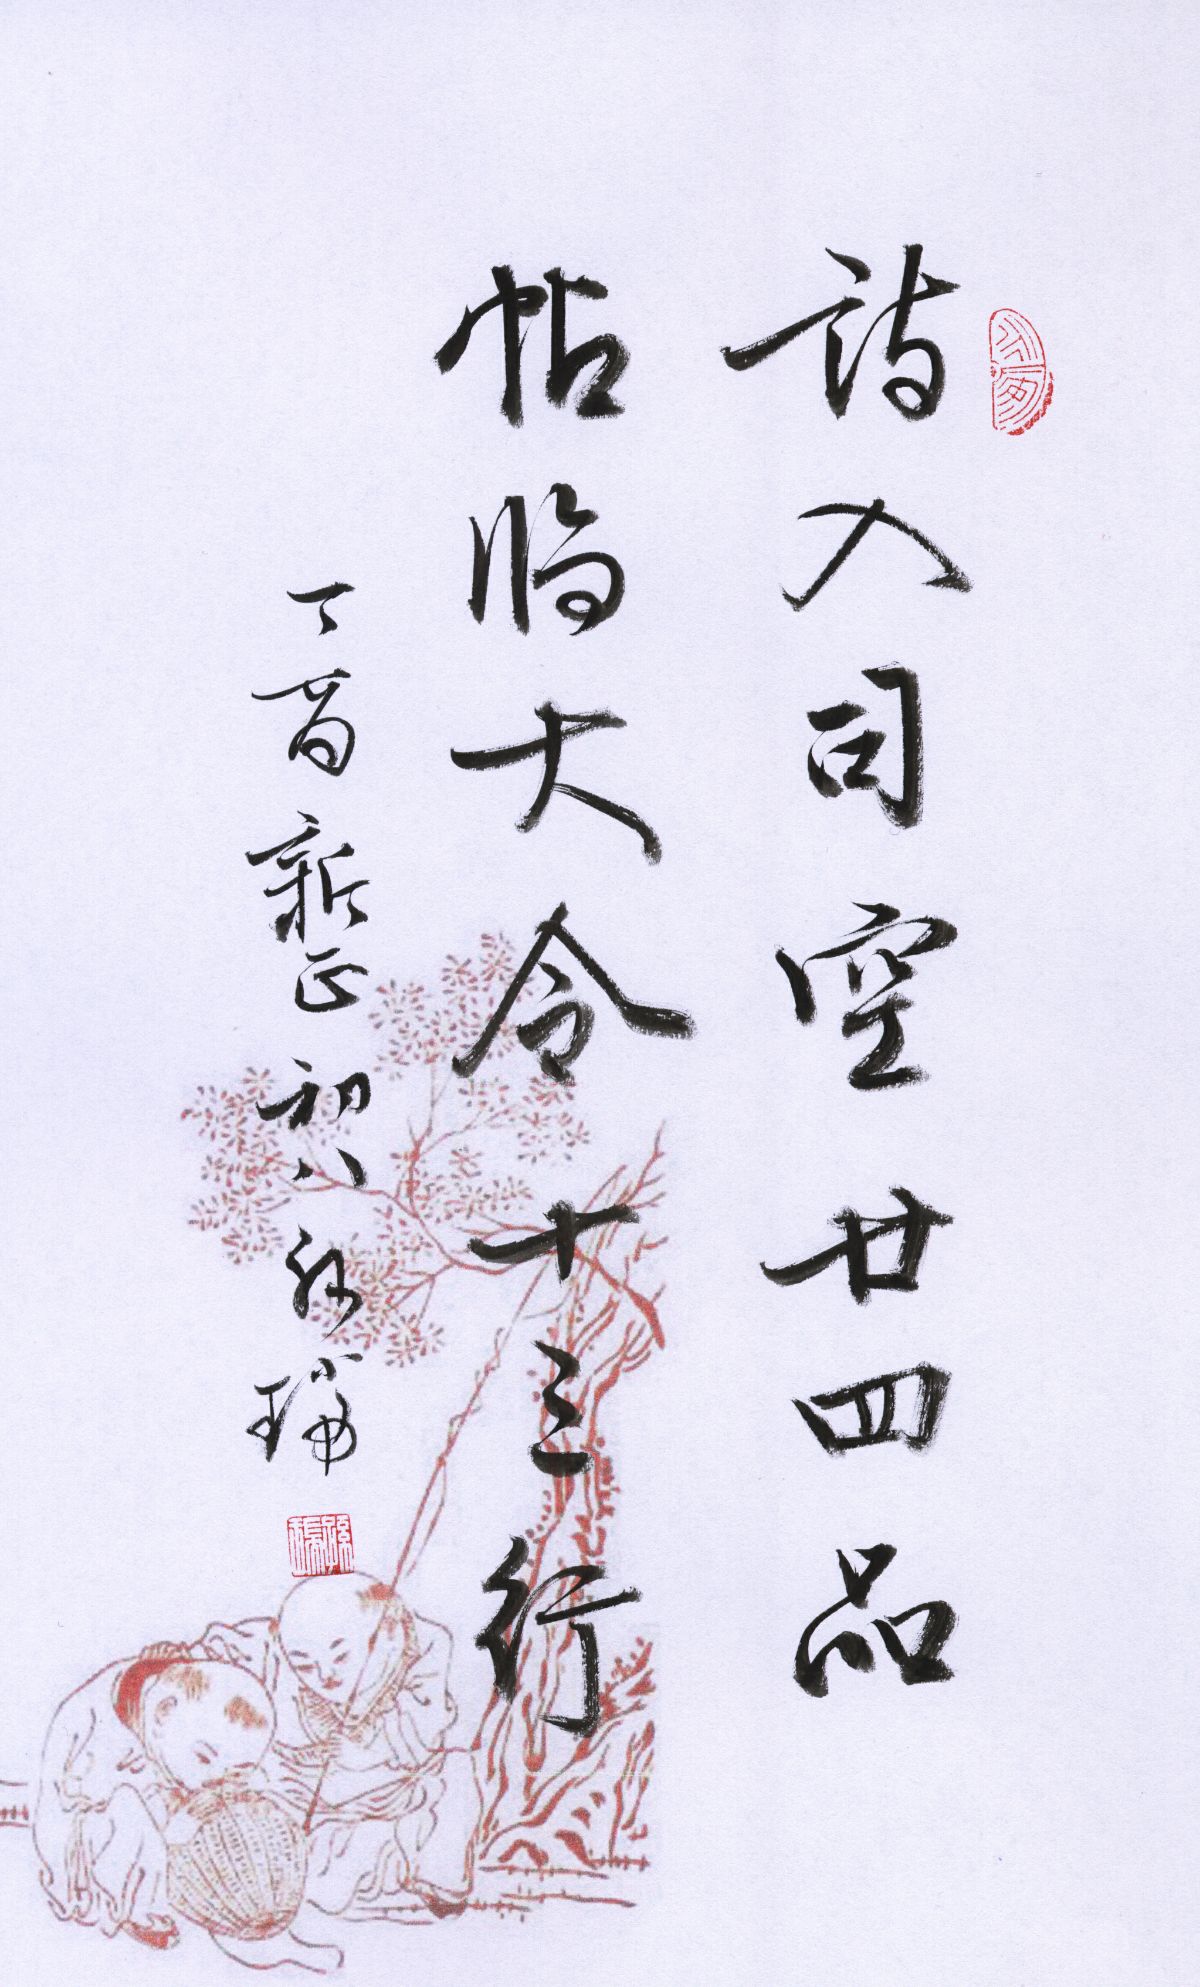 詩入司空廿四品
帖临大令十三行
丁酉新正初八永瑞